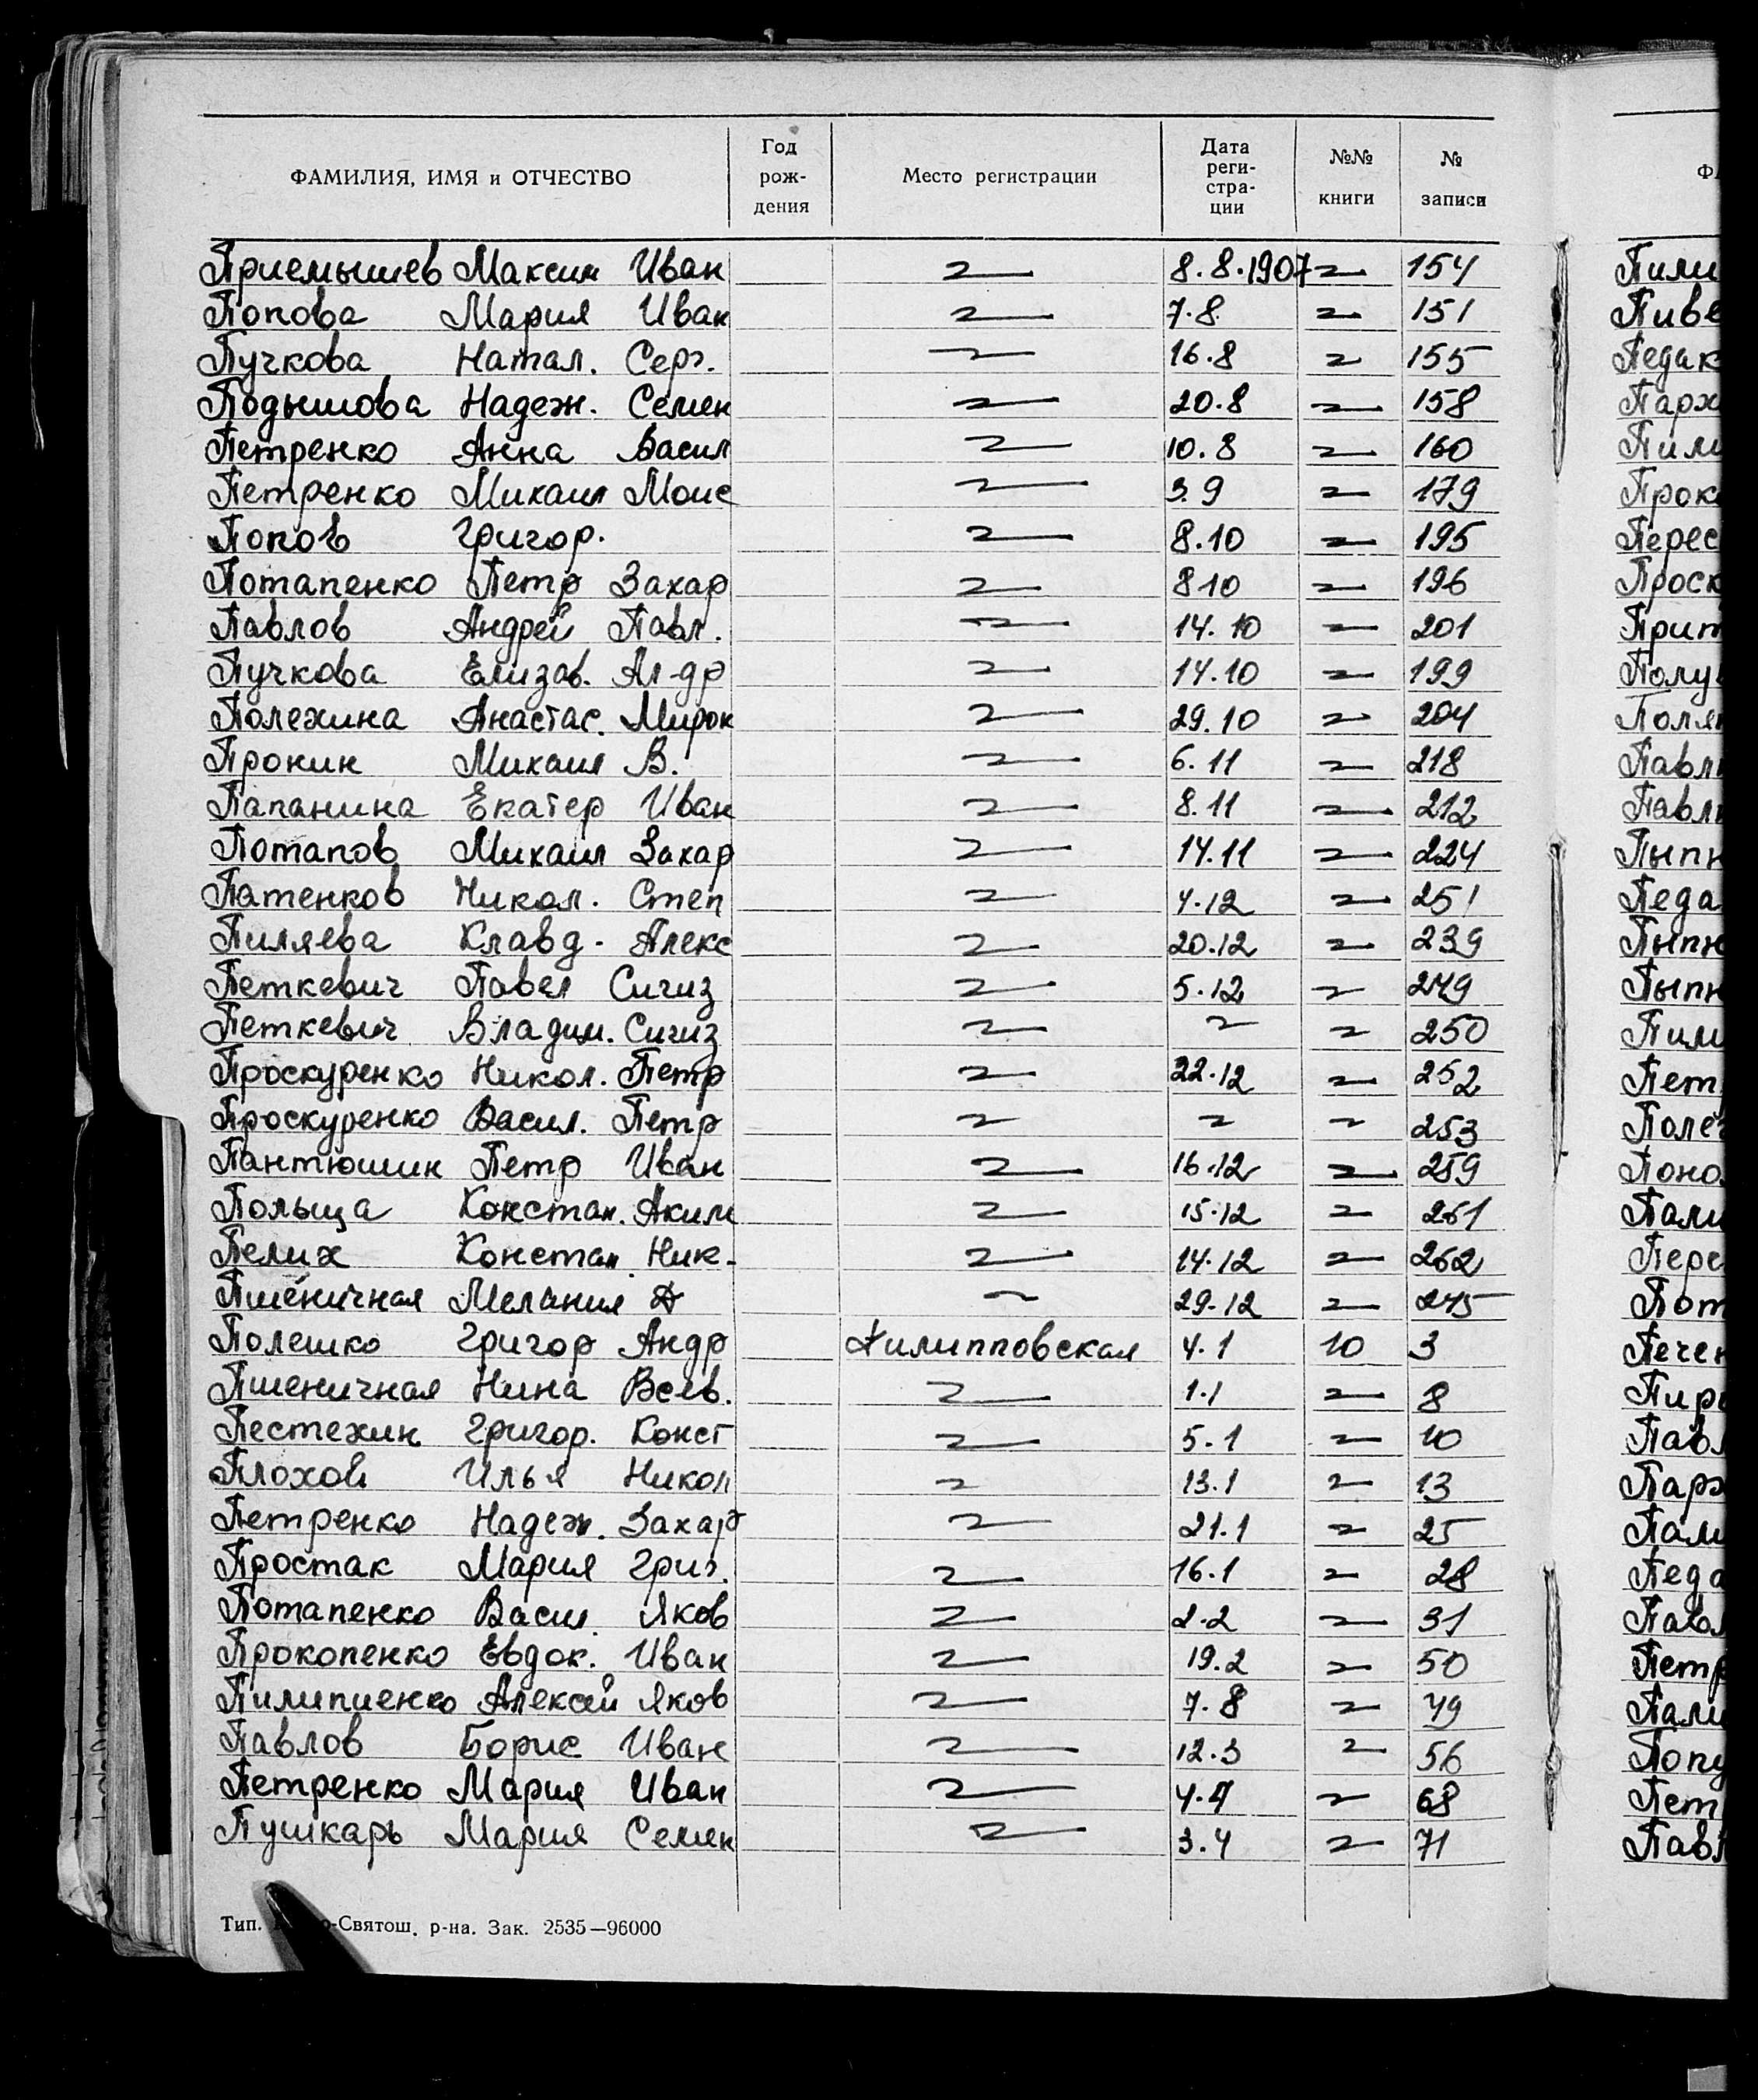 ФАМИЛИЯ, ИМЯ и ОТЧЕСТВО Год рож-дения Место регистрации Дата реги-стра-ции №№ книги № записи
Приемышев Максим Иван 8.8.1907 154
Попова Мария Иван 7.8 151
Пучкова Натал. Серг. 16.8 155
Подышова Надеж. Семен 20.8 158
Петренко Анна Васил 10.8 160
Петренко Михаил Моис 3.9 179
Попов Григор. 8.10 195
Потапенко Петр Захар 8 10 196
Павлов Андрей Павл. 14.10 201
Пучкова Елизав. Ал-др 14.10 199
Полежина Анастас. Мирон 29.10 204
Пронин Михаил В. 6.11 218
Папанина Екатер Иван 8.11 212
Потапов Михаил Захар 14.11 224
Патенков Никол. Степ 4.12 251
Пиляева Клавд. Алекс 20.12 239
Петкевич Павел Сигиз 5.12 249
Петкевич Владим. Сигиз 250
Проскуренко Никол. Петр 22.12 252
Проскуренко Васил. Петр 253
Пантюшин Петр Иван 16.12 259
Польща Констан. Аким 15.12 261
Пелих Констан Ник. 14.12 262
Пшеничная Мелания 29.12 275
Полешко Григор Андр Филипповская 4.1 10 3
Пшеничная Нина Всев. 1.1 8
Пестежин Григор. Конст 5.1 10
Плохов Илья Никол 13.1 13
Петренко Надеж. Захар 21.1 25
Простак Мария Григ. 16.1 28
Потапенко Васил. Яков 2.2 31
Прокопенко Евдок. Иван 19.2 50
Пилипиенко Алексей Яков 7.8 49
Павлов Борис Иван 12.3 56
Петренко Мария Иван 4.4 68
Пушкарь Мария Семен 3.4 71
Тип. -Святош. р-на. Зак. 2535—96000